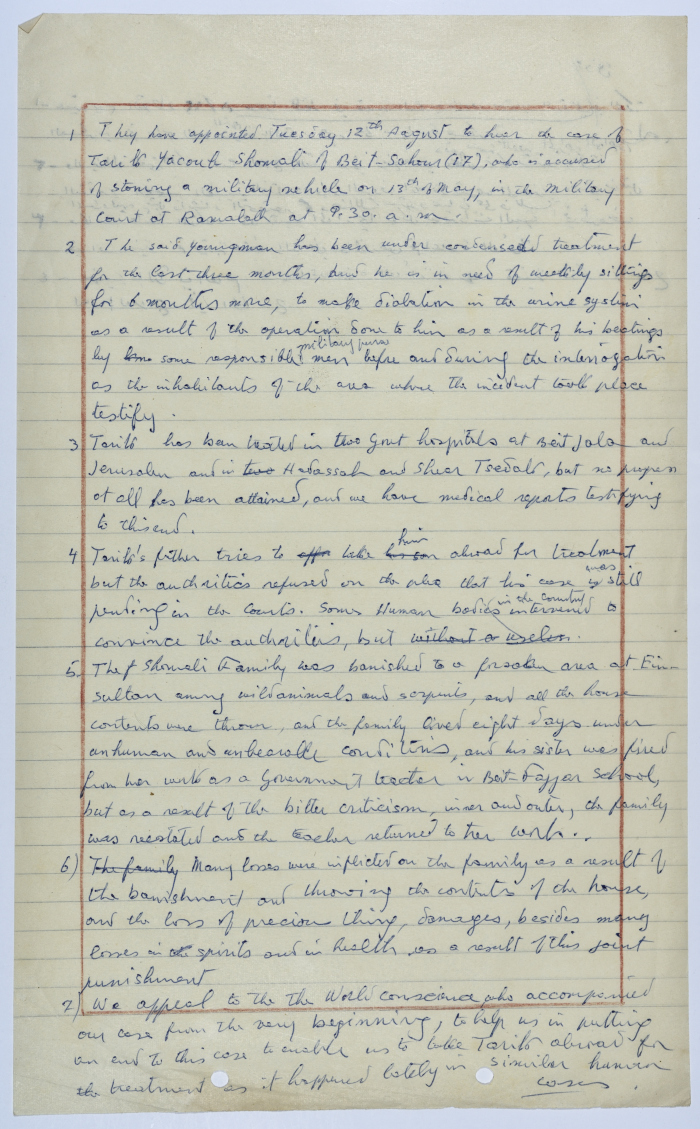 1 They have appointed Tuesday 12th August to hear the case of
Tarik Yacoub Shomali of Beit-Sahour (17), who is accused
of stoning a military vehicle on 13th of May, in the military
Court at Ramalah at 9.30. a.m.
2 The said youngman has been under condensed treatment
for the last three months, but he is in need of weekly sittings
for 6 months more, to make dilation in the urine system
as a result of the operation done to him as a result of his beatings
by some responsible men before and during the interrogation
military
as the inhabitants of the area where the incident took place
testify.
3 Tarik has been treated in two Govt hospitals at Beit Jala and
Jerusalem and in two Hadassah and Shear Tsedak, but no progress
at all has been attained, and we have medical reports testifying
to this end.
4 Tarik's father tries to take him abroad for treatment
but the authorities refused on the plea that his case was still
pending in the Courts. Some Human bodies in the country intervened to
convince the authorities, but without a useless.
5. The Shomali Family was banished to a forsaken area at Ein-
Sultan among wild animals and serpents, and all the house
contents were thrown, and the family lived eight days under
unhuman and unbearable conditions, and his sister was fired
from her work as a Government teacher in Beit-Fajjar School,
but as a result of the bitter criticism, inner and outer, the family
was reestated and the teacher returned to her work..
6) The family Many losses were inflicted on the family as a result of
the banishment and throwing the contents of the house,
and the loss of precious thing, damages, besides many
losses in the spirits and in health, as a result of this joint
punishment
7) We appeal to the the World conscience who accompanied
our case from the very beginning, to help us in putting
an end to this case to enable us to take Tarik abroad for
the treatment as it happened lately in similar human
cases.